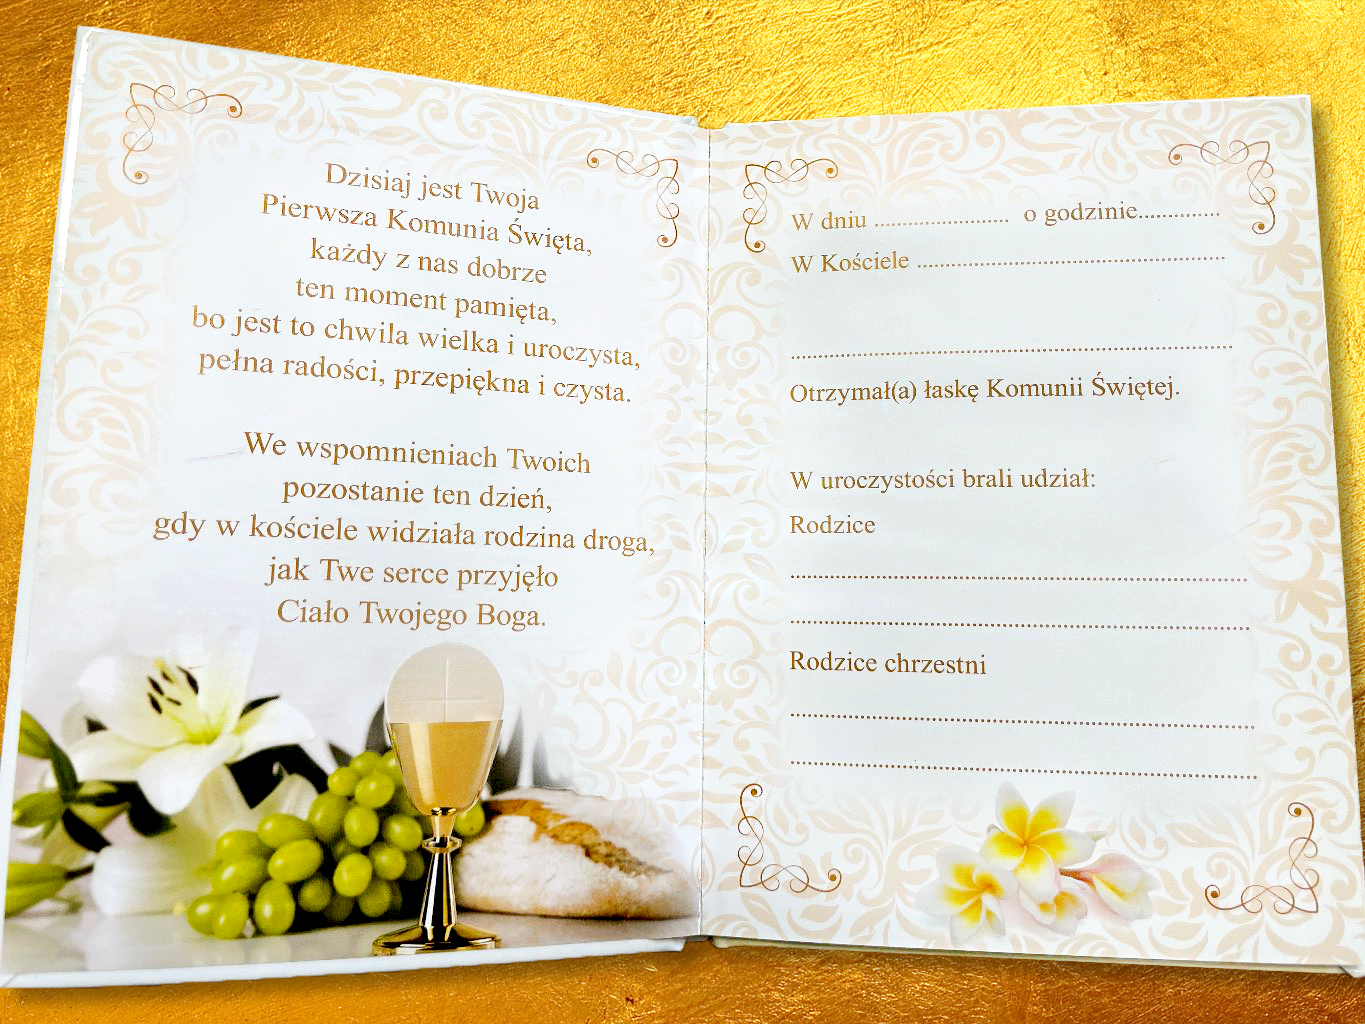 Dzisiaj jest Twoja
Pierwsza Komunia Święta,
każdy z nas dobrze
ten moment pamięta,
bo jest to chwila wielka i uroczysta,
pełna radości, przepiękna i czysta.
We wspomnieniach Twoich
pozostanie ten dzień,
gdy w kościele widziała rodzina droga,
jak Twe serce przyjęło
Ciało Twojego Boga.
W dniu ..................... o godzinie.............
W Kościele ................................................
......................................................................
Otrzymał(a) łaskę Komunii Świętej.
W uroczystości brali udział:
Rodzice
......................................................................
......................................................................
Rodzice chrzestni
......................................................................
......................................................................